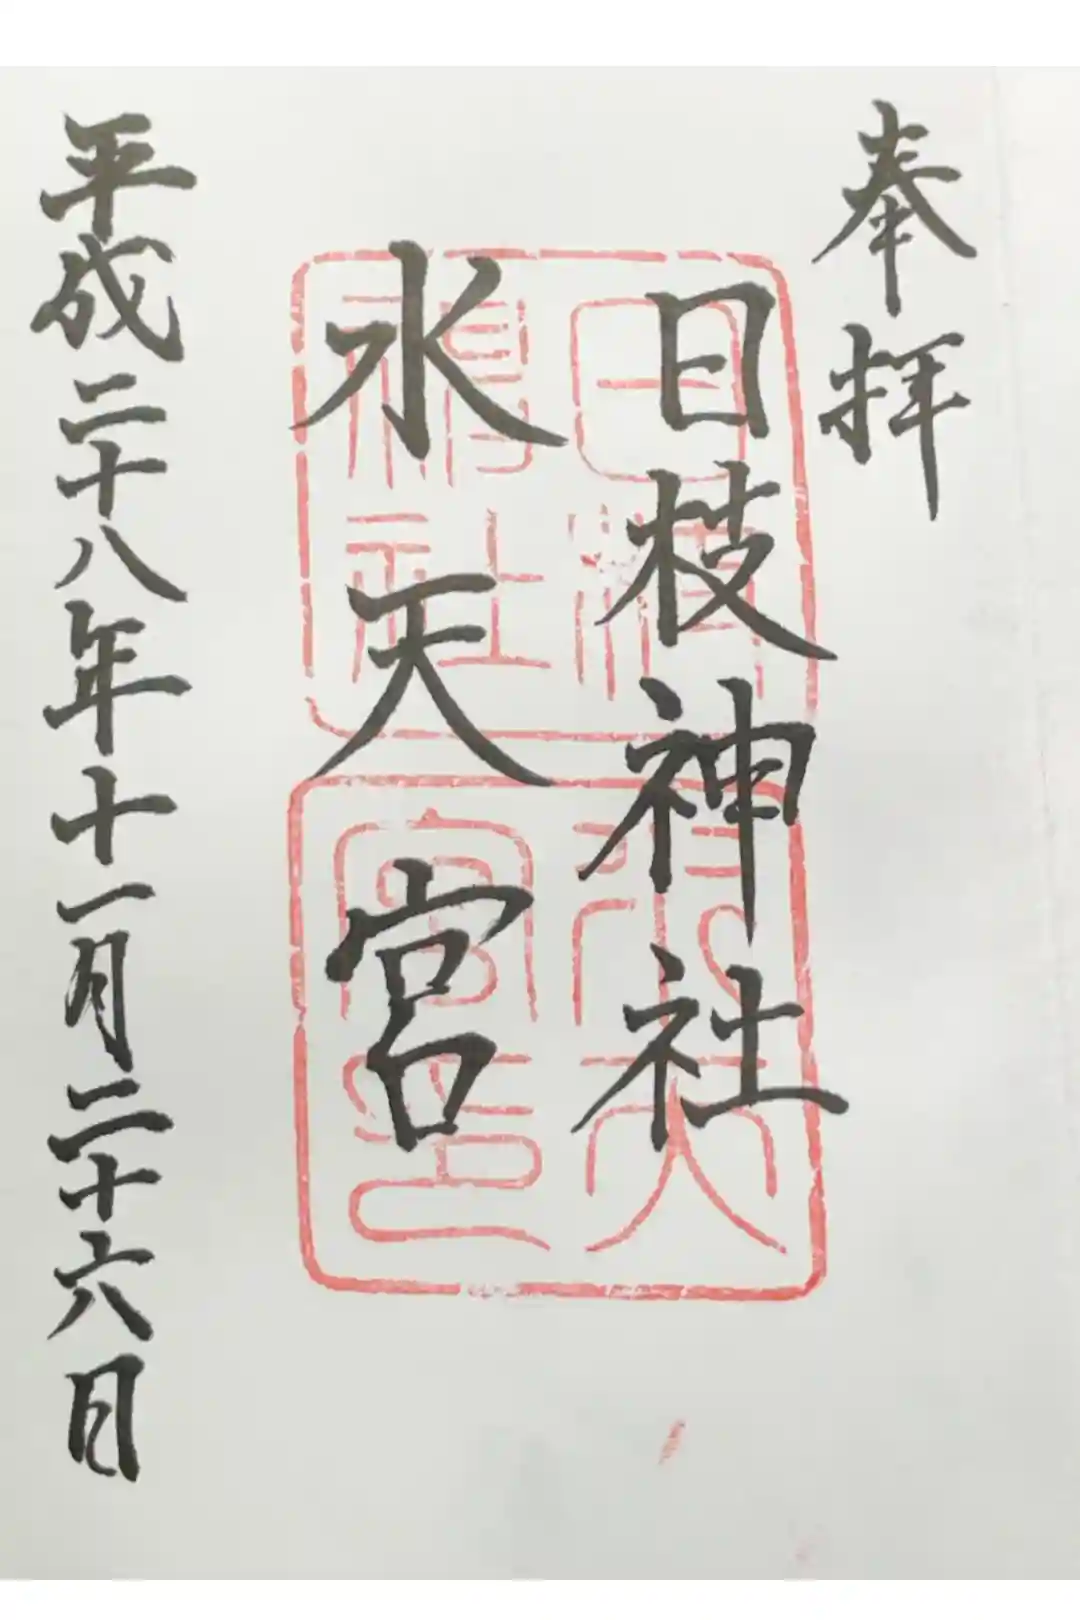 奉拝
日枝神社
水天宮
平成二十八年十一月二十六日